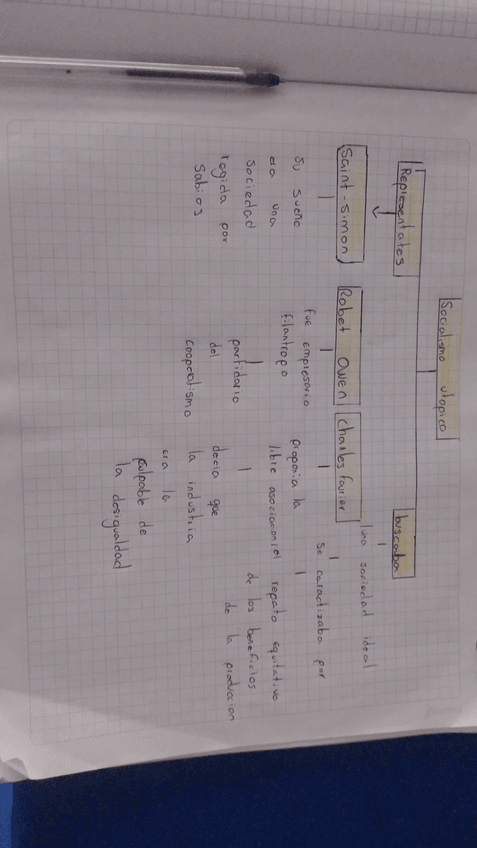 Socialismo utopico
Representates
buscaba
Saint-simon
Robet Owen
Charles fourier
Una sociedad ideal
Su sueño
era una
sociedad
regida por
sabios
fue empresario
filantropo
partidario
del
cooperatismo
proponia la
libre asociacion
decia que
la industria
era la
culpable de
la desigualdad
se caractizaba por
el repato equitativo
de los beneficios
de la produccion